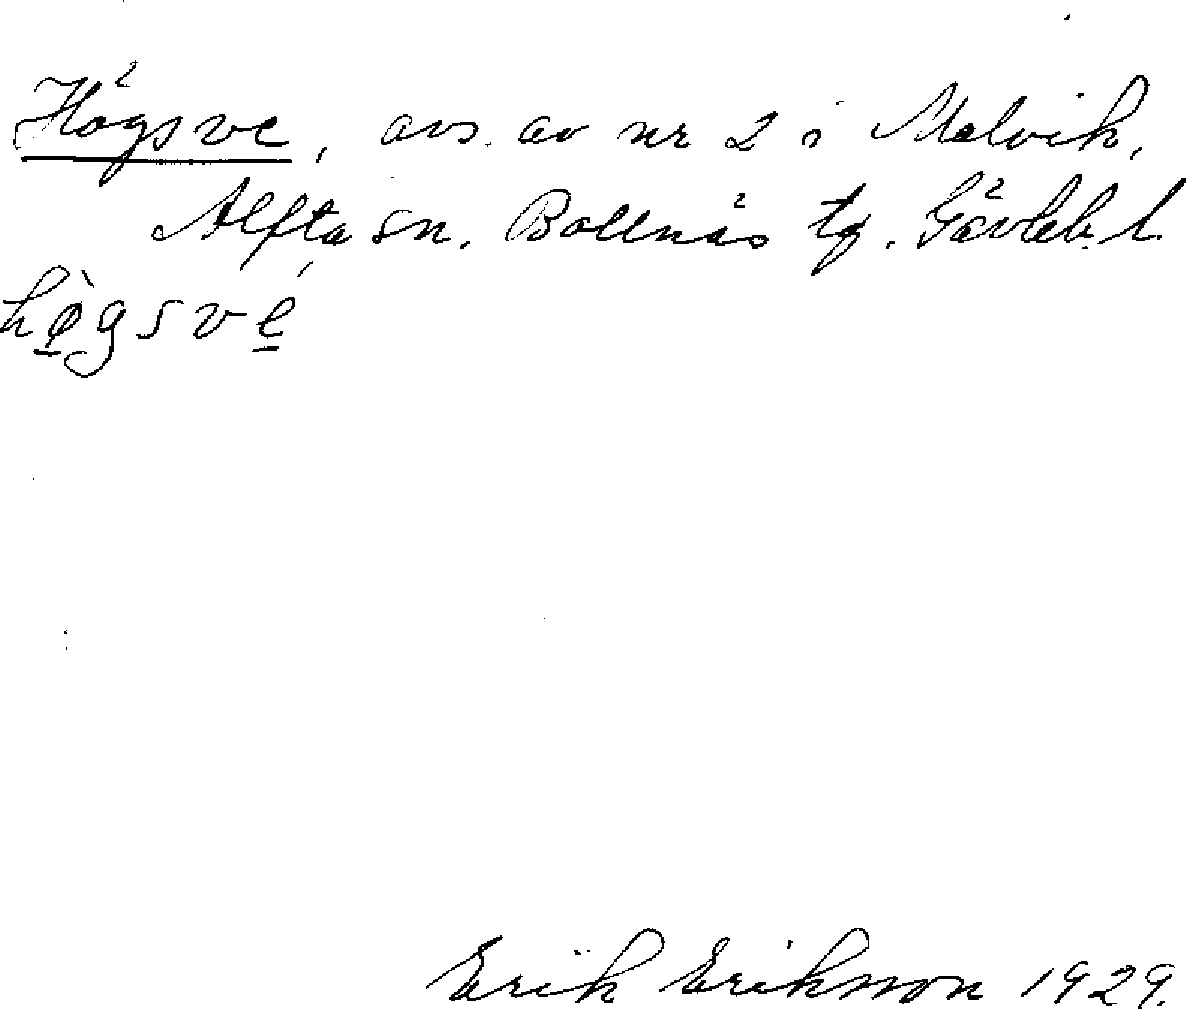 Högsve, avs. av nr 2 i Malvik,
Alfta sn. Bollnäs tg. Gävleb. l.
hø̀gsvé
Erik Eriksson 1929.